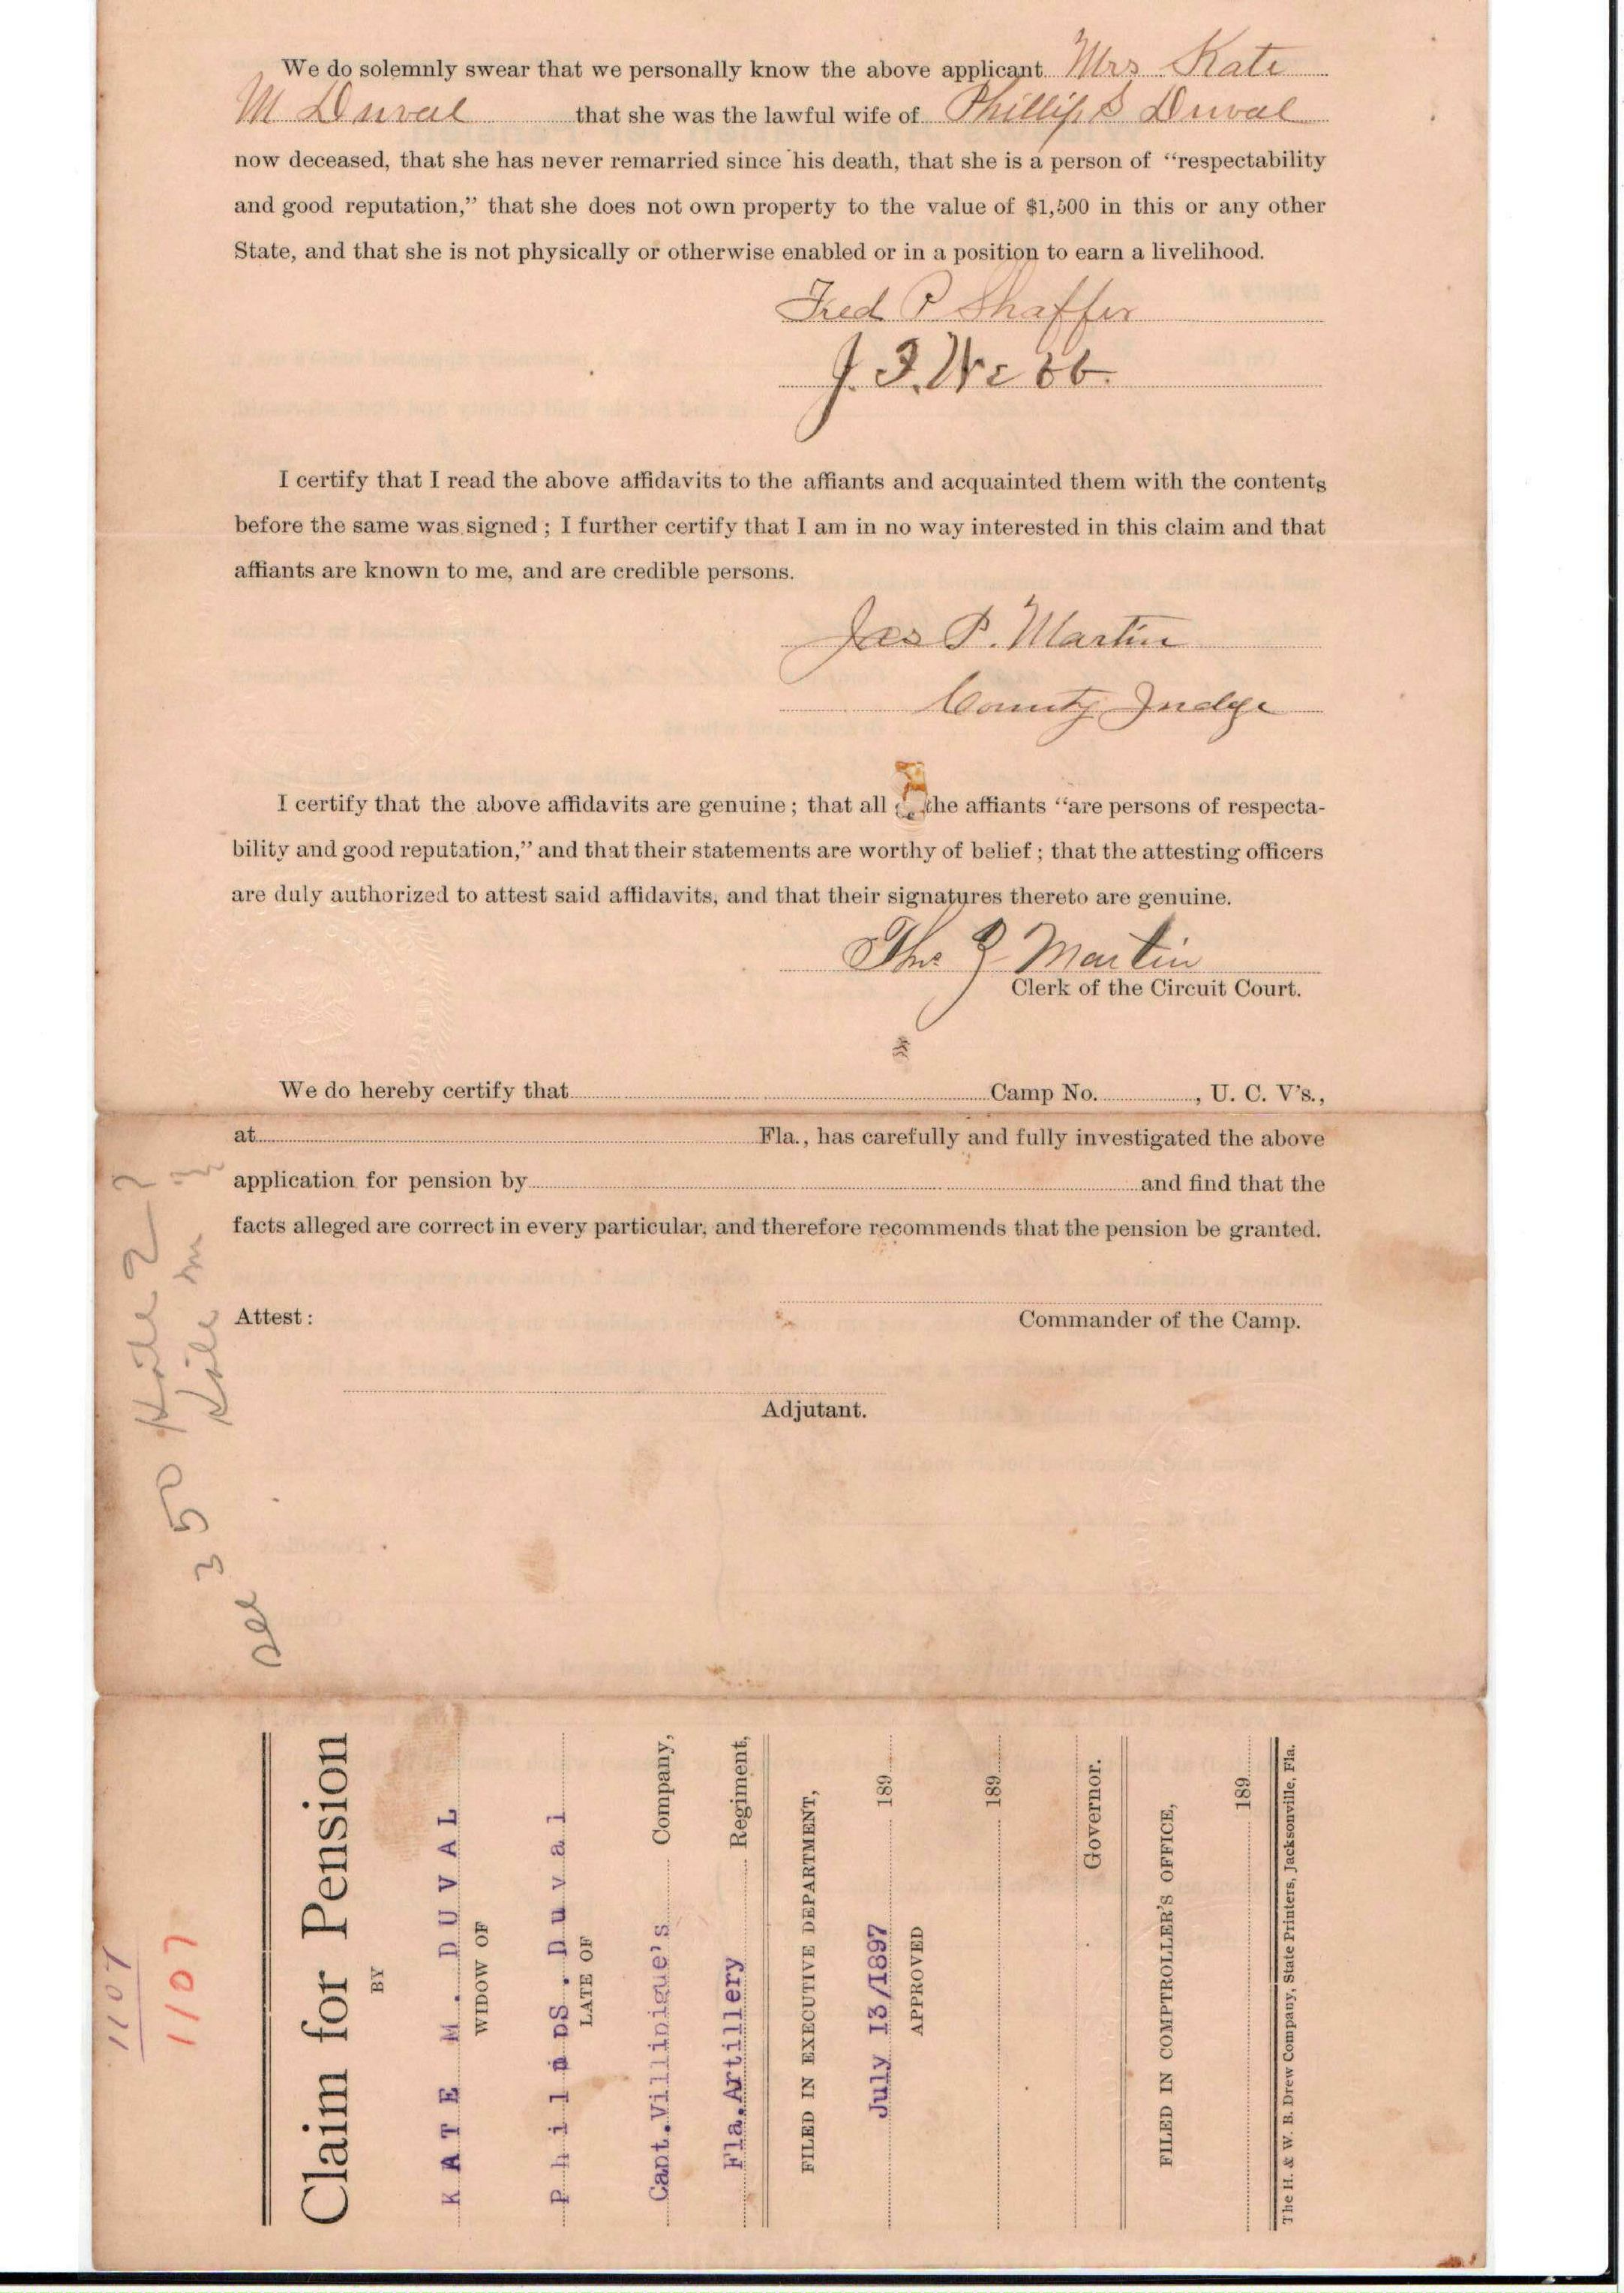 We do solemnly swear that we personally know the above applicant Mrs Kate
M Duval that she was the lawful wife of Phillip S Duval
now deceased, that she has never remarried since his death, that she is a person of “respectability
and good reputation,” that she does not own property to the value of $1,500 in this or any other
State, and that she is not physically or otherwise enabled or in a position to earn a livelihood.
Fred P Shaffer
J. F. Webb.
I certify that I read the above affidavits to the affiants and acquainted them with the contents
before the same was signed; I further certify that I am in no way interested in this claim and that
affiants are known to me, and are credible persons.
Jas P. Martin
County Judge
I certify that the above affidavits are genuine; that all the affiants “are persons of respecta-
bility and good reputation,” and that their statements are worthy of belief; that the attesting officers
are duly authorized to attest said affidavits, and that their signatures thereto are genuine.
Thos J Martin
Clerk of the Circuit Court.
We do hereby certify that Camp No. , U. C. V's.,
at Fla., has carefully and fully investigated the above
application for pension by and find that the
facts alleged are correct in every particular, and therefore recommends that the pension be granted.
Attest: Commander of the Camp.
Adjutant.
350
1107
1107
Claim for Pension
BY
KATE M. DUVAL
WIDOW OF
Philip S. Duval
LATE OF
Capt. Villipigue's Company,
Fla. Artillery Regiment,
FILED IN EXECUTIVE DEPARTMENT,
July 13/1897 189
APPROVED
189
Governor.
FILED IN COMPTROLLER'S OFFICE,
189
The H. & W. B. Drew Company, State Printers, Jacksonville, Fla.